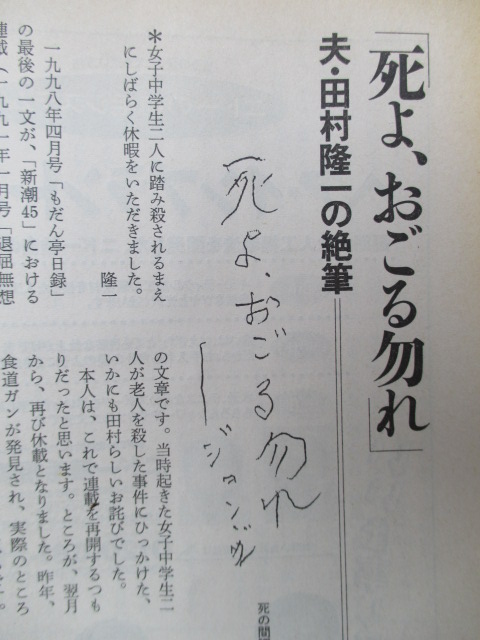 「死よ、おごる勿れ」
夫・田村隆一の絶筆
死よ、おごる勿れ
ジョン・ダン
＊女子中学生二人に踏み殺されるまえ
にしばらく休暇をいただきました。
隆一
一九九八年四月号「もだん亭日録」
の最後の一文が、「新潮45」における
連載（一九九一年一月号「退屈無想
の文章です。当時起きた女子中学生二
人が老人を殺した事件にひっかけた、
いかにも田村らしいお詫びでした。
本人は、これで連載を再開するつも
りだったと思います。ところが、翌月
から、再び休載となりました。昨年、
食道ガンが発見され、実際のところ
死の間